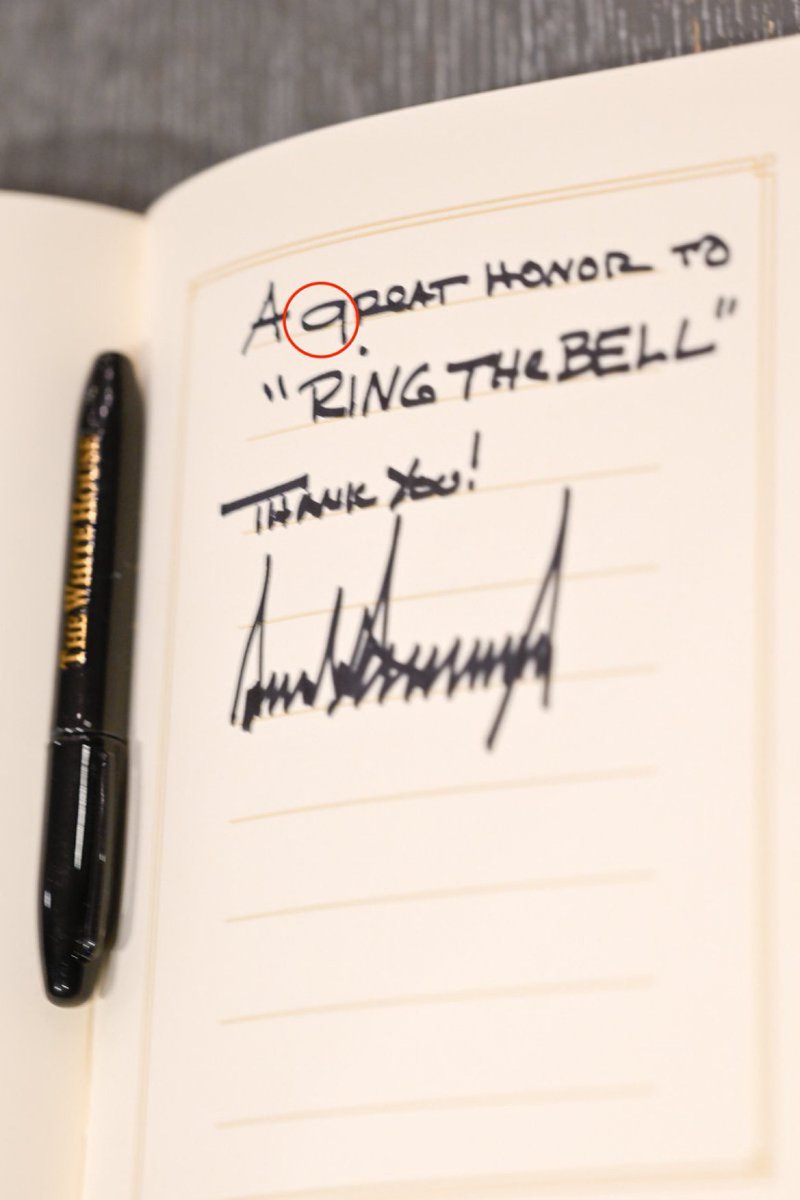 A gREAT HONOR TO
"RiNG THe BELL"
THANK YOU!
THE WHITE HOUSE